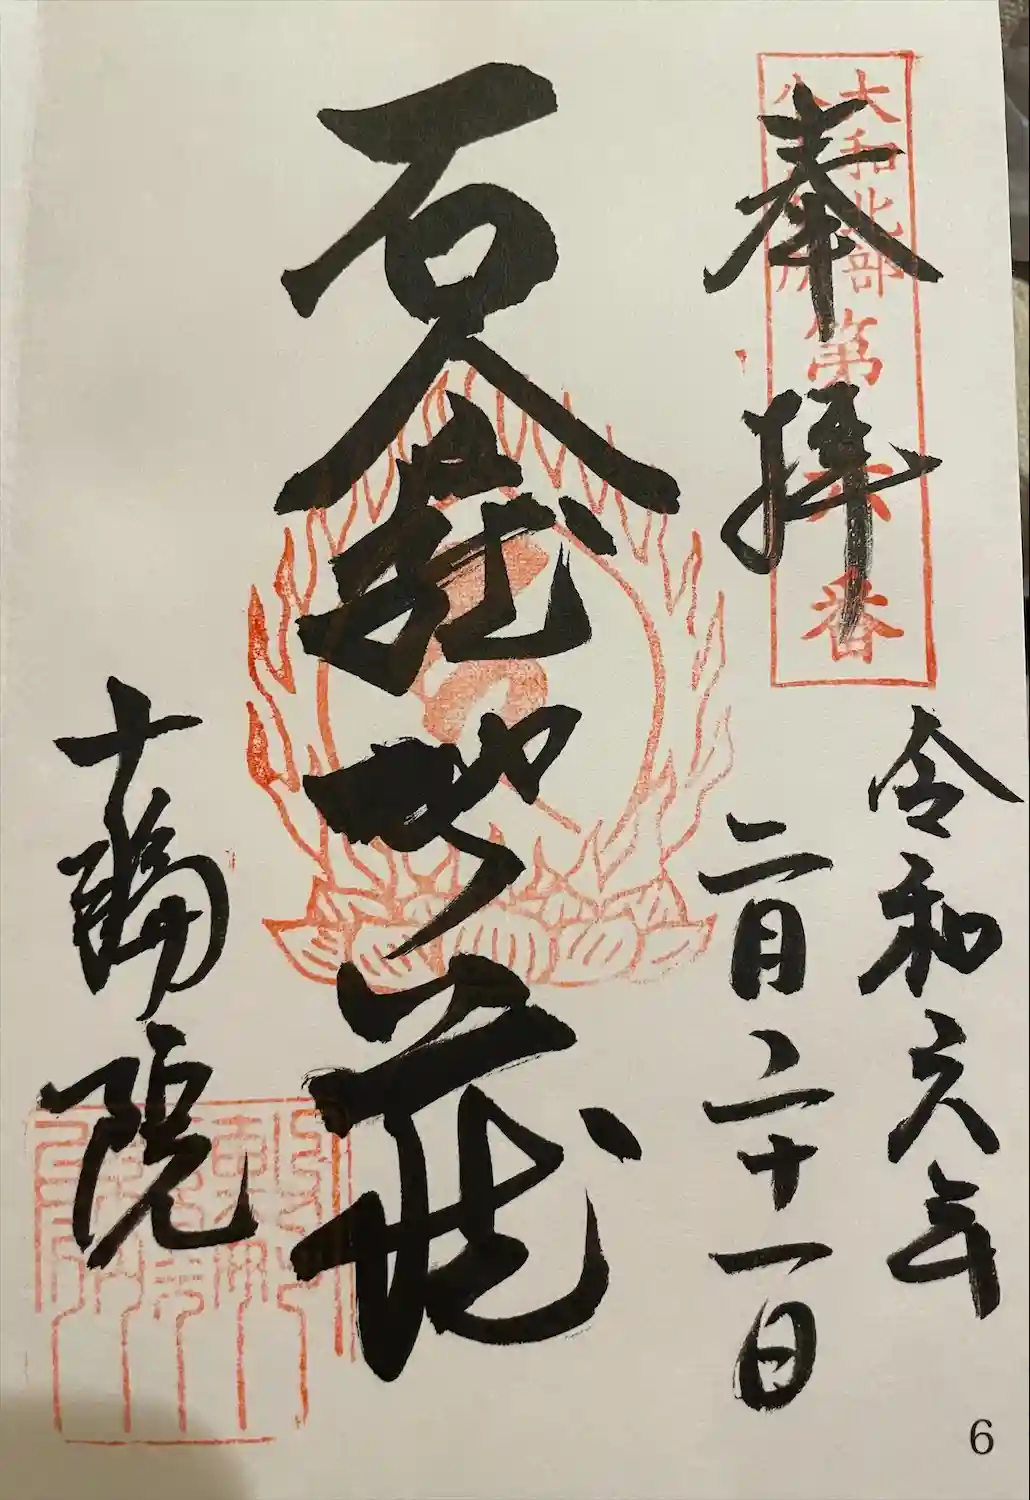 大和北部
八十八ヶ所
第六番
奉拝
令和六年
二月二十一日
石龕地蔵
十輪院
6